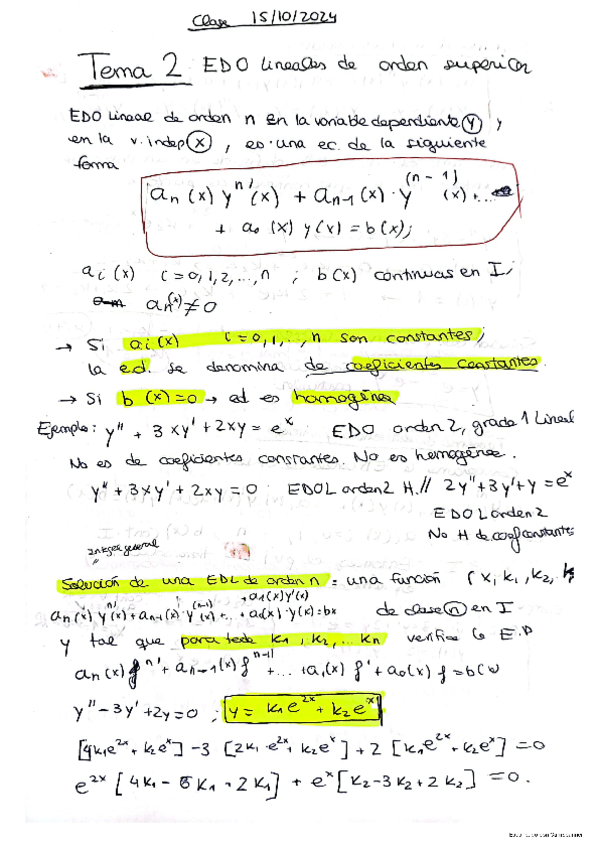 Clase 15/10/2024
Tema 2 EDO lineales de orden superior
EDO lineal de orden n en la variable dependiente y
en la v. indep x, es una ec. de la siguiente
forma
aₙ(x) yⁿ⁾(x) + aₙ₋₁(x)·y⁽ⁿ⁻¹⁾(x) + ...
+ a₀(x) y(x) = b(x);
aᵢ(x) i=0,1,2,...,n ; b(x) continuas en I;
aₙ(x) ≠ 0
→ Si aᵢ(x) i=0,1,...,n son constantes;
la ed. se denomina de coeficientes constantes.
→ Si b(x)=0 → ed es homogénea
Ejemplo: y'' + 3xy' + 2xy = eˣ EDO orden 2, grado 1 Lineal
No es de coeficientes constantes. No es homogénea.
y'' + 3xy' + 2xy = 0 EDOL orden 2 H. // 2y''+3y'+y = eˣ
EDOL orden 2
No H de coef constantes
Integral general
Solución de una EDL de orden n = una función (x, k₁, k₂, k
+a₁(x)y'(x)
aₙ(x) yⁿ⁾(x) + aₙ₋₁(x) y⁽ⁿ⁻¹⁾(x) + ... + a₀(x)·y(x) = bx de clase n en I
y tal que para todo k₁, k₂, ... kₙ verifica la E.D
aₙ(x) fⁿ⁾ + aₙ₋₁(x) fⁿ⁻¹⁾ + ... + a₁(x) f' + a₀(x) f = b(x)
y'' - 3y' + 2y = 0 ; y = k₁e²ˣ + k₂eˣ
[4k₁e²ˣ + k₂eˣ] - 3 [2k₁·e²ˣ + k₂eˣ] + 2 [k₁e²ˣ + k₂eˣ] = 0
e²ˣ [4k₁ - 6k₁ + 2k₁] + eˣ [k₂ - 3k₂ + 2k₂] = 0.